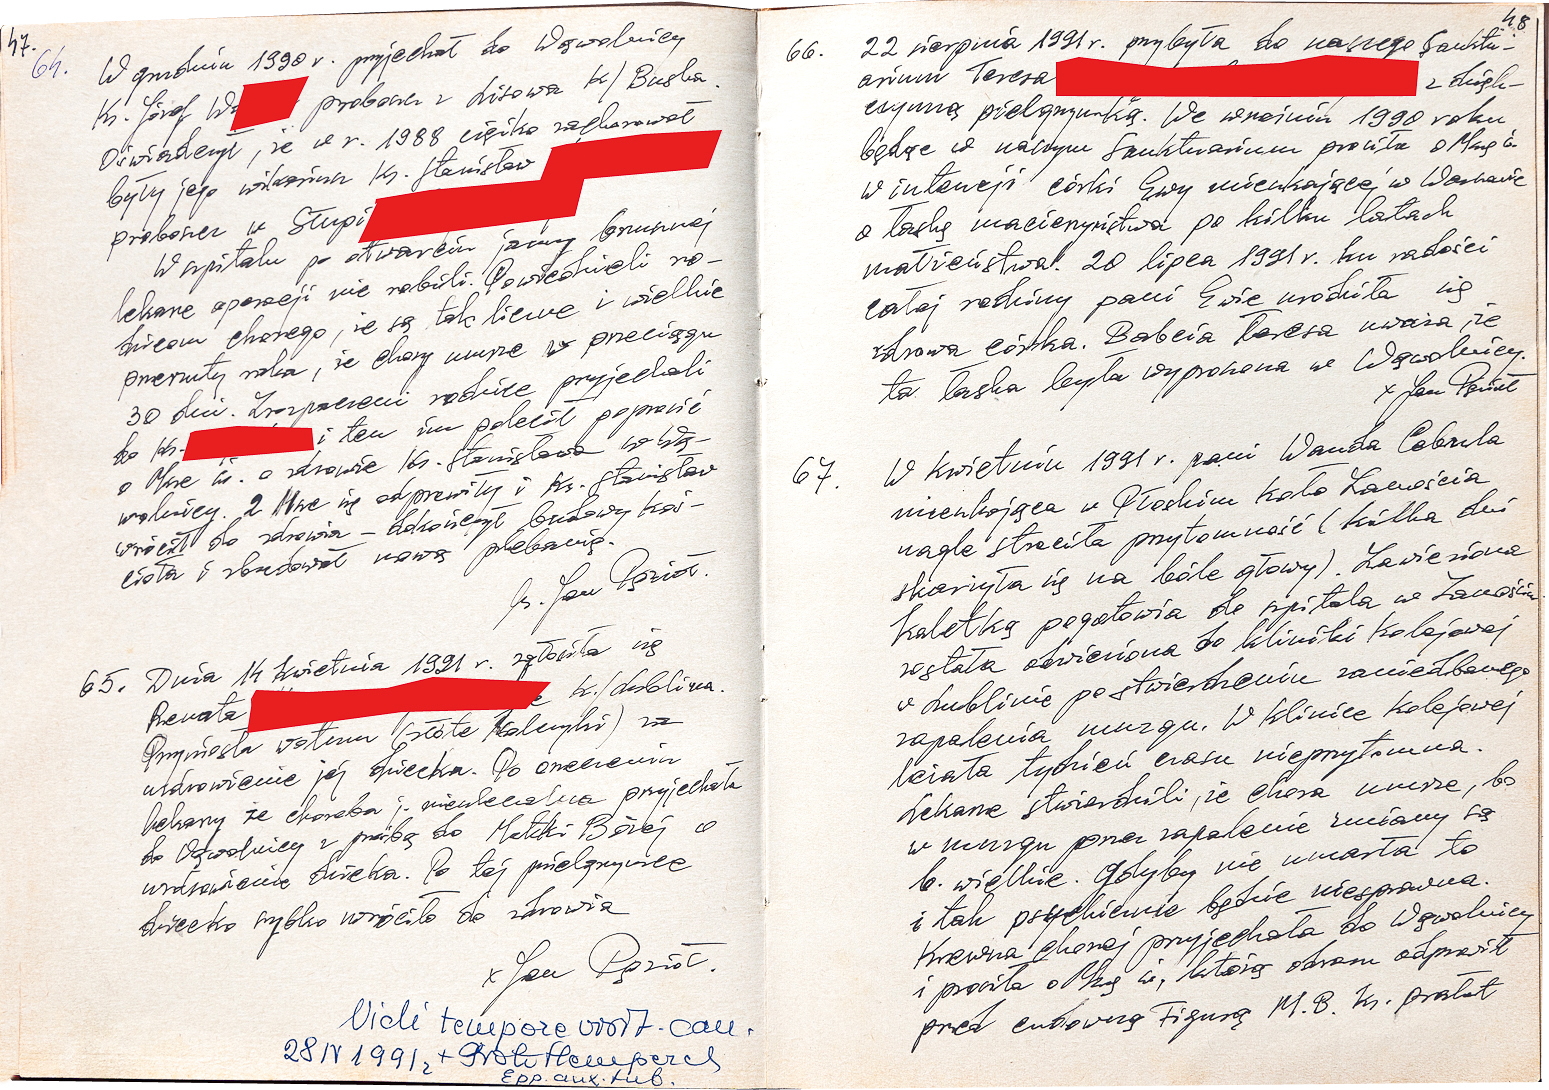 47.
64. W grudniu 1990 r. przyjechał do Wąwolnicy
Ks. Józef Wa proboszcz z Lisowa k/Buska.
Oświadczył, że w r. 1988 ciężko zachorował
były jego wikariusz Ks. Stanisław
proboszcz w Słupi
W szpitalu po otwarciu jamy brzusznej
lekarze operacji nie robili. Powiedzieli ro-
dzicom chorego, że są tak liczne i wielkie
przerzuty raka, że chory umrze w przeciągu
30 dni. Zrozpaczeni rodzice przyjechali
do Ks. i ten im polecił poprosić
o Msze św. o zdrowie Ks. Stanisława w Wą-
wolnicy. 2 Msze się odprawiły i Ks. Stanisław
wrócił do zdrowia – dokończył budowy koś-
cioła i zbudował nową plebanię.
ks. Jan Pęzioł.
65. Dnia 14 kwietnia 1991 r. zgłosiła się
Renata k./Lublina.
Przyniosła wotum (złote kolczyki) za
uzdrowienie jej dziecka. Po orzeczeniu
lekarzy że choroba j. nieuleczalna przyjechała
do Wąwolnicy z prośbą do Matki Bożej o
uzdrowienie dziecka. Po tej pielgrzymce
dziecko szybko wróciło do zdrowia
x Jan Pęzioł.
Vidi tempore vizit. can.
28 IV 1991 r. +
Epp. aux. Lub.
48
66. 22 sierpnia 1991 r. przybyła do naszego Sanktu-
arium Teresa z dzięk-
czynną pielgrzymką. We wrześniu 1990 roku
będąc w naszym Sanktuarium prosiła o Mszę św.
w intencji córki Ewy mieszkającej w Warszawie
o łaskę macierzyństwa po kilku latach
małżeństwa. 20 lipca 1991 r. ku radości
całej rodziny pani Ewie urodziła się
zdrowa córka. Babcia Teresa uważa, że
ta łaska była wyproszona w Wąwolnicy.
x Jan Pęzioł
67. W kwietniu 1991 r. pani Wanda Cabrula
mieszkająca w Płoskim koło Zamościa
nagle straciła przytomność (kilka dni
skarżyła się na bóle głowy). Zawieziona
karetką pogotowia do szpitala w Zamościu
została odwieziona do kliniki kolejowej
w Lublinie po stwierdzeniu zaniedbanego
zapalenia mózgu. W klinice kolejowej
leżała tydzień czasu nieprzytomna.
Lekarze stwierdzili, że chora umrze, bo
w mózgu przez zapalenie zmiany są
b. wielkie. Gdyby nie umarła to
i tak psychicznie będzie niesprawna.
Krewna chorej przyjechała do Wąwolnicy
i prosiła o Mszę św., którą odprawił
przed cudowną Figurą M.B. Ks. prałat